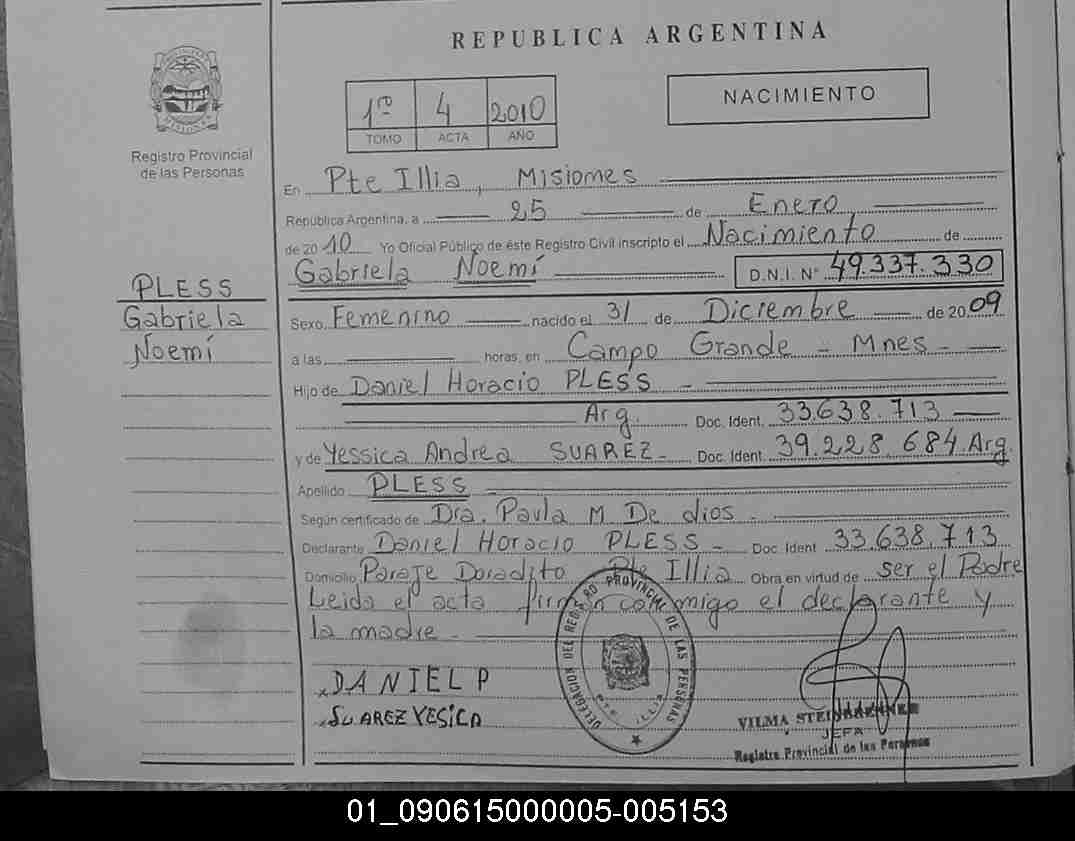 REPUBLICA ARGENTINA
PROVINCIA DE MISIONES
Registro Provincial
de las Personas
1ro 4 2010
TOMO ACTA AÑO
NACIMIENTO
PLESS
Gabriela
Noemí
En Pte Illia, Misiones
República Argentina, a 25 de Enero
de 2010 Yo Oficial Público de éste Registro Civil inscripto el Nacimiento de
Gabriela Noemí D.N.I. N° 49.337.330
Sexo Femenino nacido el 31 de Diciembre de 2009
a las horas, en Campo Grande - Mnes -
Hijo de Daniel Horacio PLESS -
Arg. Doc. Ident. 33.638.713
y de Yessica Andrea SUAREZ - Doc. Ident. 39.228.684 Arg.
Apellido PLESS
Según certificado de Dra. Paula M. De dios -
Declarante Daniel Horacio PLESS - Doc. Ident 33.638.713
Domicilio Paraje Doradito Pte Illia Obra en virtud de ser el Padre
Leida el acta firman conmigo el declarante y
la madre -
x DANIEL P
x SUAREZ YESICA
DELEGACION DEL REGISTRO PROVINCIAL DE LAS PERSONAS
PTE. ILLIA
VILMA STEINBRENNER
JEFA
Registro Provincial de las Personas
01_090615000005-005153